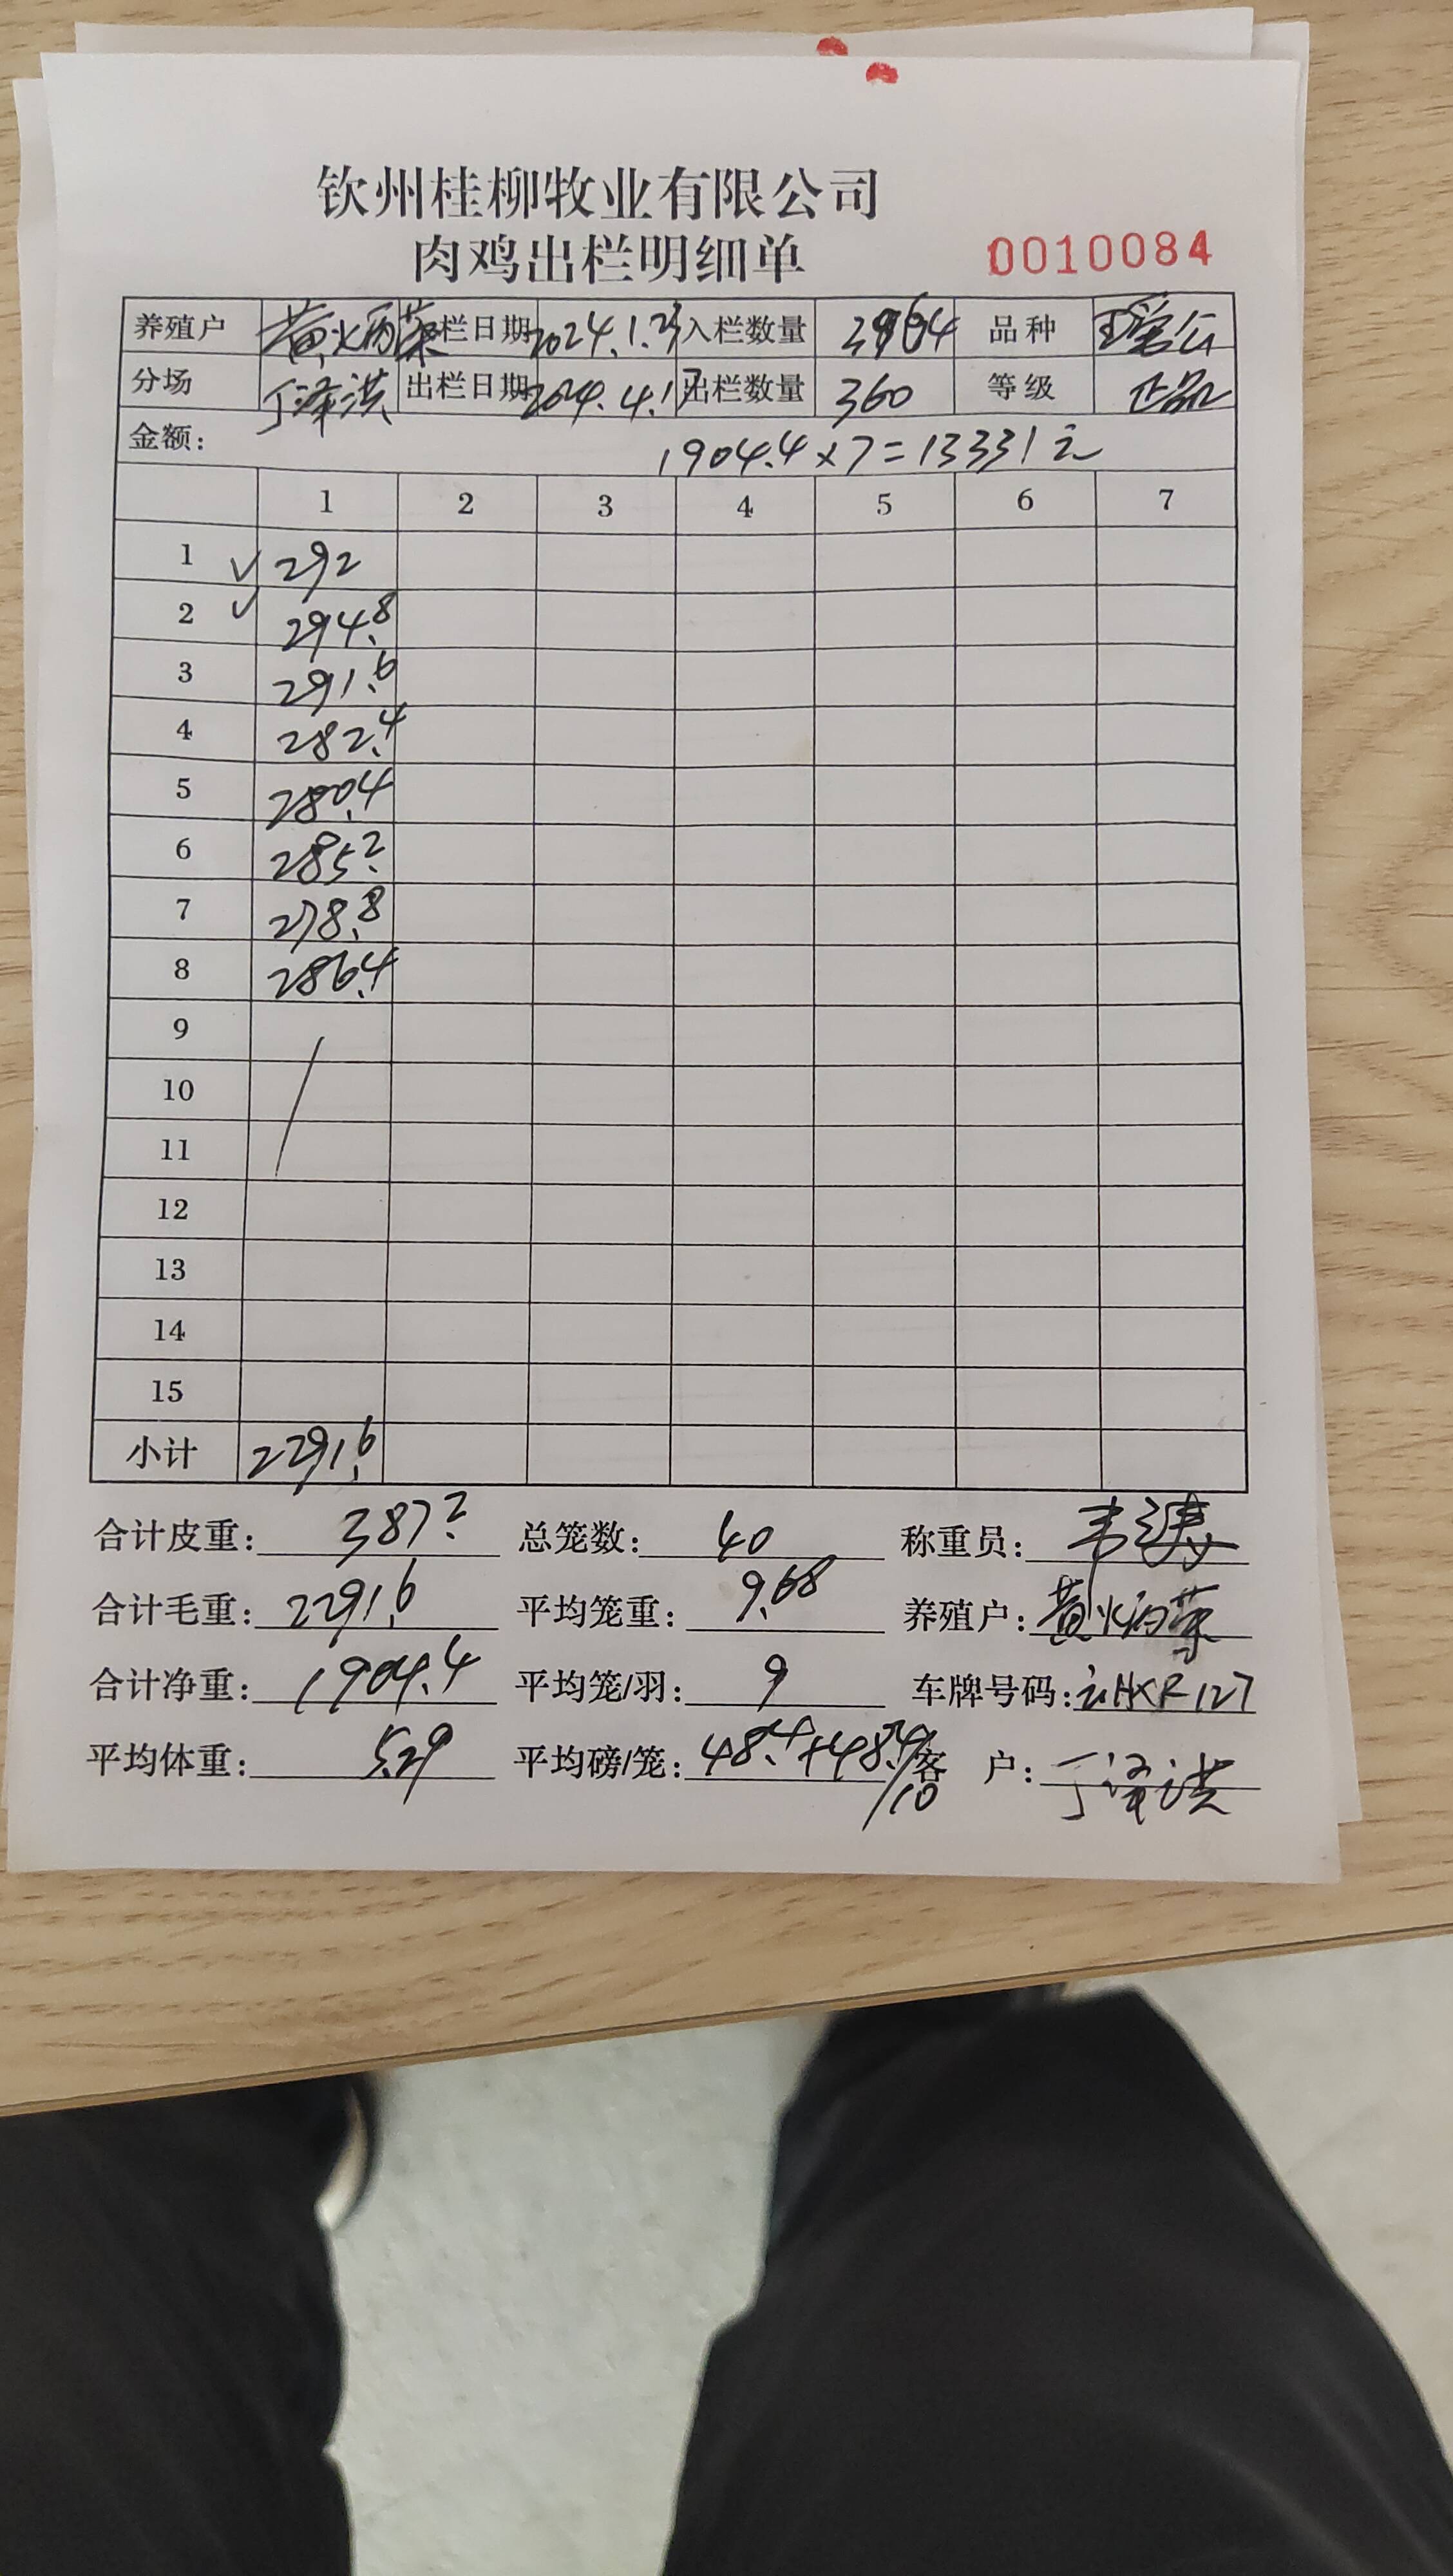 钦州桂柳牧业有限公司
肉鸡出栏明细单 0010084
养殖户 黄炳荣 栏日期 2024.1.23 入栏数量 3964 品种 瑶公
分场 丁泽洪 出栏日期 2024.4.17 出栏数量 360 等级 正品
金额: 1904.4×7=13331元
1 2 3 4 5 6 7
1 ✓ 292
2 ✓ 294.8
3 291.6
4 282.4
5 280.4
6 285.2
7 278.8
8 286.4
9
10
11
12
13
14
15
小计 2291.6
合计皮重: 387.2 总笼数: 40 称重员: 韦
合计毛重: 2291.6 平均笼重: 9.68 养殖户: 黄炳荣
合计净重: 1904.4 平均笼/羽: 9 车牌号码: 127
平均体重: 5.29 平均磅/笼: 48.4+48.4/10 客 户: 丁泽洪